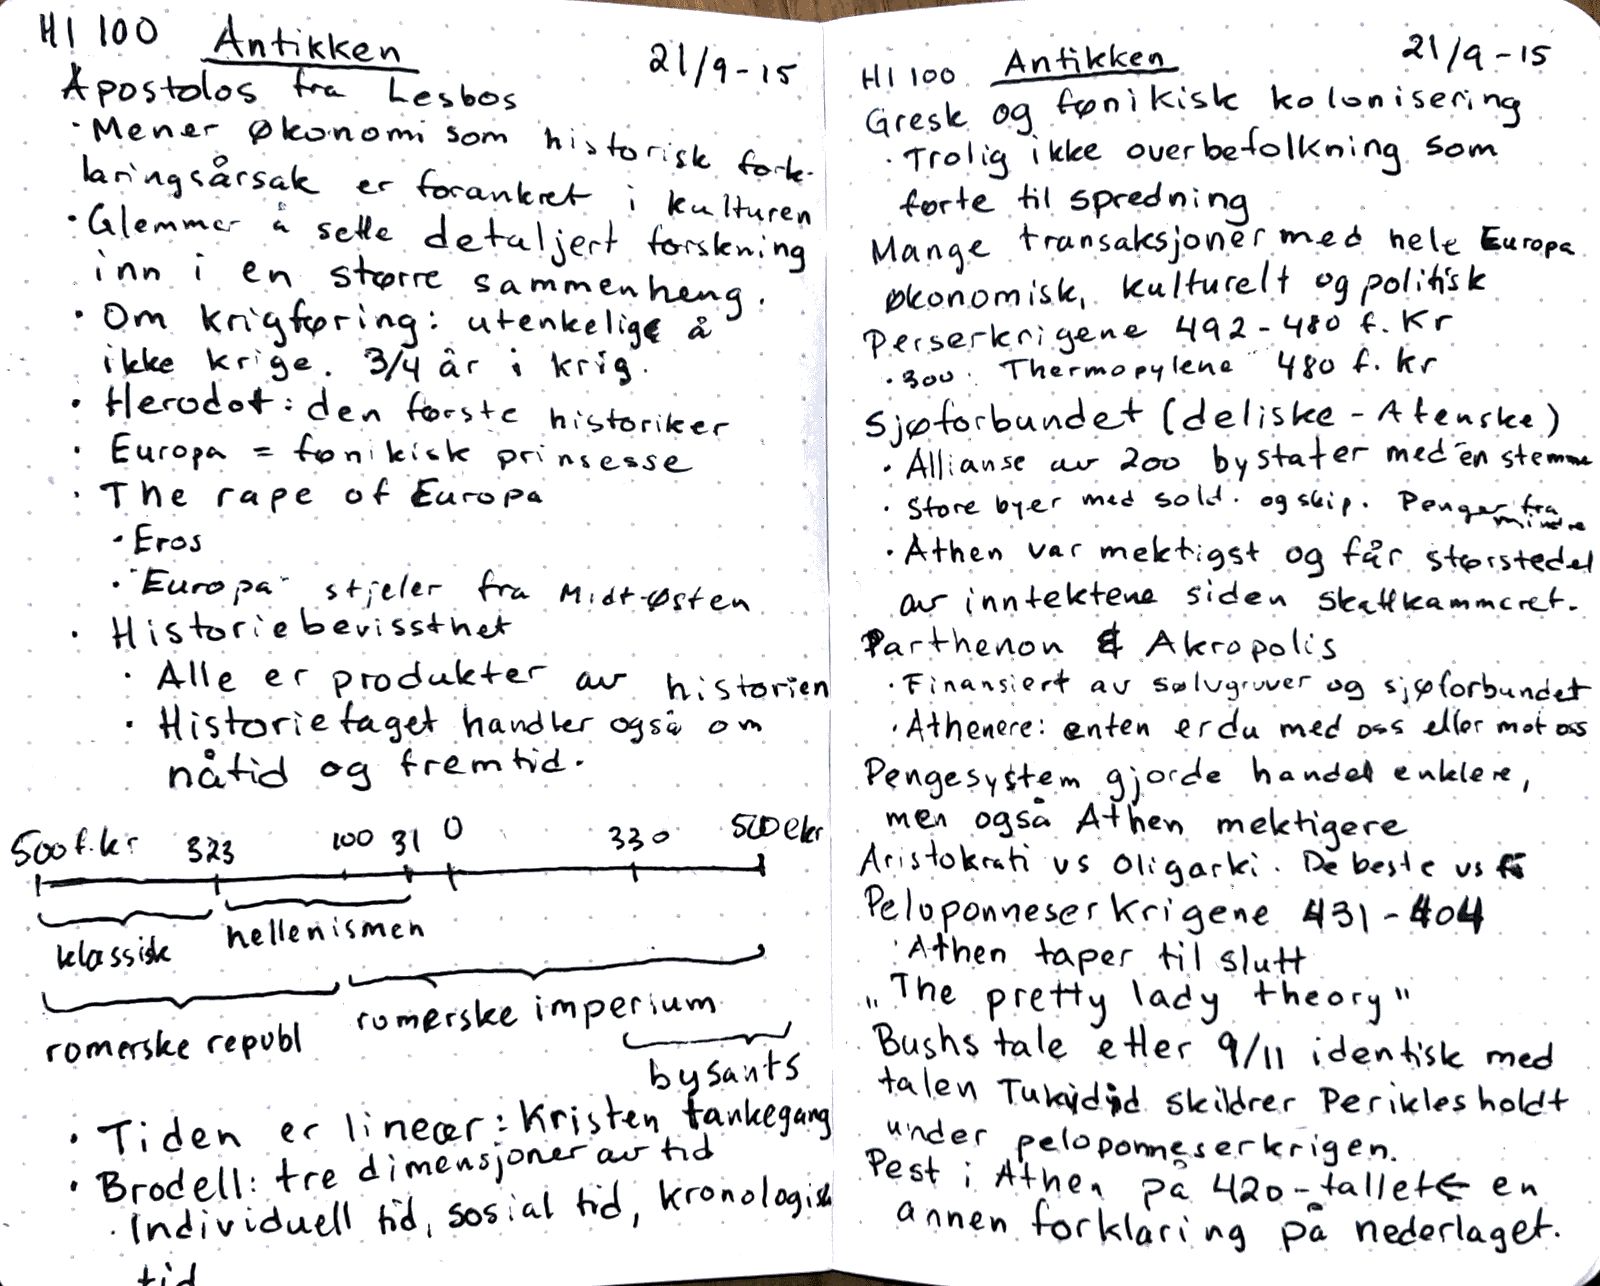 HI 100 Antikken 21/9-15
Apostolos fra Lesbos
· Mener økonomi som historisk fork-
laringsårsak er forankret i kulturen
· Glemmer å sette detaljert forskning
inn i en større sammenheng.
· Om krigføring: utenkelige å
ikke krige. 3/4 år i krig.
· Herodot: den første historiker
· Europa = fønikisk prinsesse
· The rape of Europa
· Eros
· "Europa" stjeler fra Midt-Østen
· Historiebevissthet
· Alle er produkter av historien
· Historiefaget handler også om
nåtid og fremtid.
500 f.kr 323 100 31 0 330 500 e kr
klassisk hellenismen
romerske republ romerske imperium
bysants
· Tiden er lineær: Kristen tankegang
· Brodell: tre dimensjoner av tid
· Individuell tid, sosial tid, kronologisk
tid
HI 100 Antikken 21/9-15
Gresk og fønikisk kolonisering
· Trolig ikke overbefolkning som
førte til spredning
Mange transaksjoner med hele Europa
økonomisk, kulturelt og politisk
Perserkrigene 492-480 f. Kr
· 300: Thermopylene 480 f. kr
Sjøforbundet (deliske - Atenske)
· Allianse av 200 bystater med én stemme
· Store byer med sold. og skip. Penger fra mindre
· Athen var mektigst og får størstedel
av inntektene siden skattkammeret.
Parthenon & Akropolis
· Finansiert av sølvgruver og sjøforbundet
· Athenere: enten er du med oss eller mot oss
Pengesystem gjorde handel enklere,
men også Athen mektigere
Aristokrati vs Oligarki. De beste vs få
Peloponneserkrigene 431-404
· Athen taper til slutt
„The pretty lady theory"
Bushs tale etter 9/11 identisk med
talen Tukydid skildrer Perikles holdt
under peloponneserkrigen.
Pest i Athen på 420-tallet ← en
annen forklaring på nederlaget.